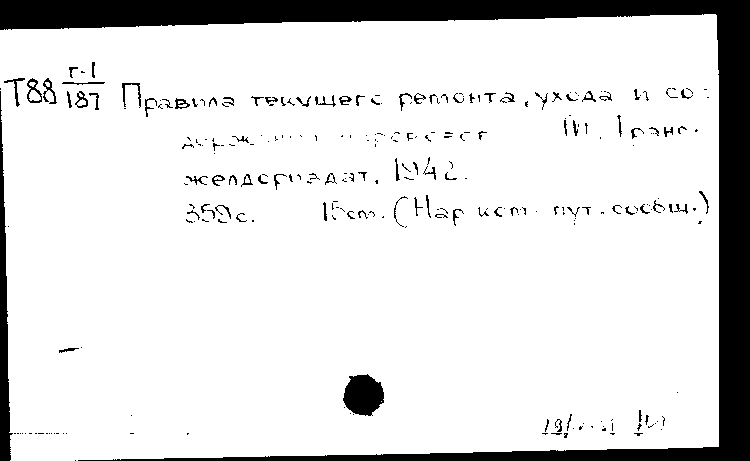 Т88 Г-1/187 Правила текущего ремонта, ухода и со-
держания паровозов М., Транс.
желдориздат, 1942.
359с. 15cm. (Нар. ком. пут. сообщ.)